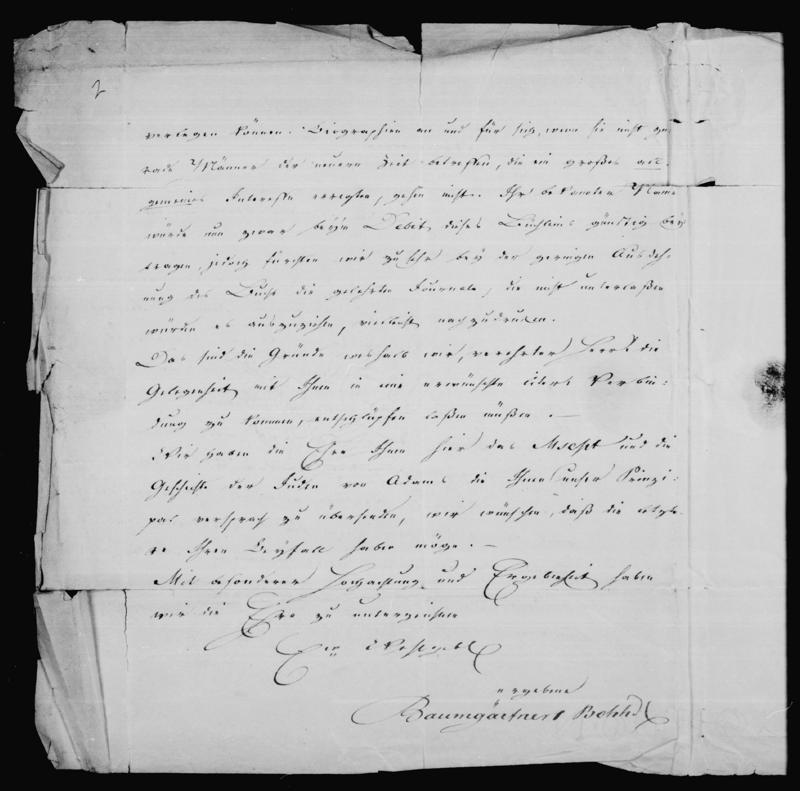 2
verlegen können. Biographien an und für sich, wenn sie nicht ge-
rade Männer der neuern Zeit betreffen, die ein großes all-
gemeines Interesse erregten, gehen nicht. Ihr bekannter Name
würde nun zwar beym Debit dieses Büchleins günstig bey
tragen, jedoch fürchten wir zu sehr bey der geringen Ausdeh-
nung des Buchs die gelehrten Journale, die nicht unterlaßen
würden es auszuziehen, vielleicht nachzudrucken.
Das sind die Gründe weshalb wir, verehrter Herr die
Gelegenheit mit Ihnen in eine erwünschte liter. Verbin-
dung zu kommen, entschlüpfen laßen müßen. —
Wir haben die Ehre Ihnen hier das Mscpt und die
Geschichte der Juden von Adams die Ihnen unser Prinzi-
pal versprach zu übersenden, wir wünschen, daß die letzte-
re Ihren Beyfall haben möge. —
Mit besonderer Hochachtung und Ergebenheit haben
wir die Ehre zu unterzeichnen
Ew Wohlgeb
ergebene
Baumgärtners Bchhdl